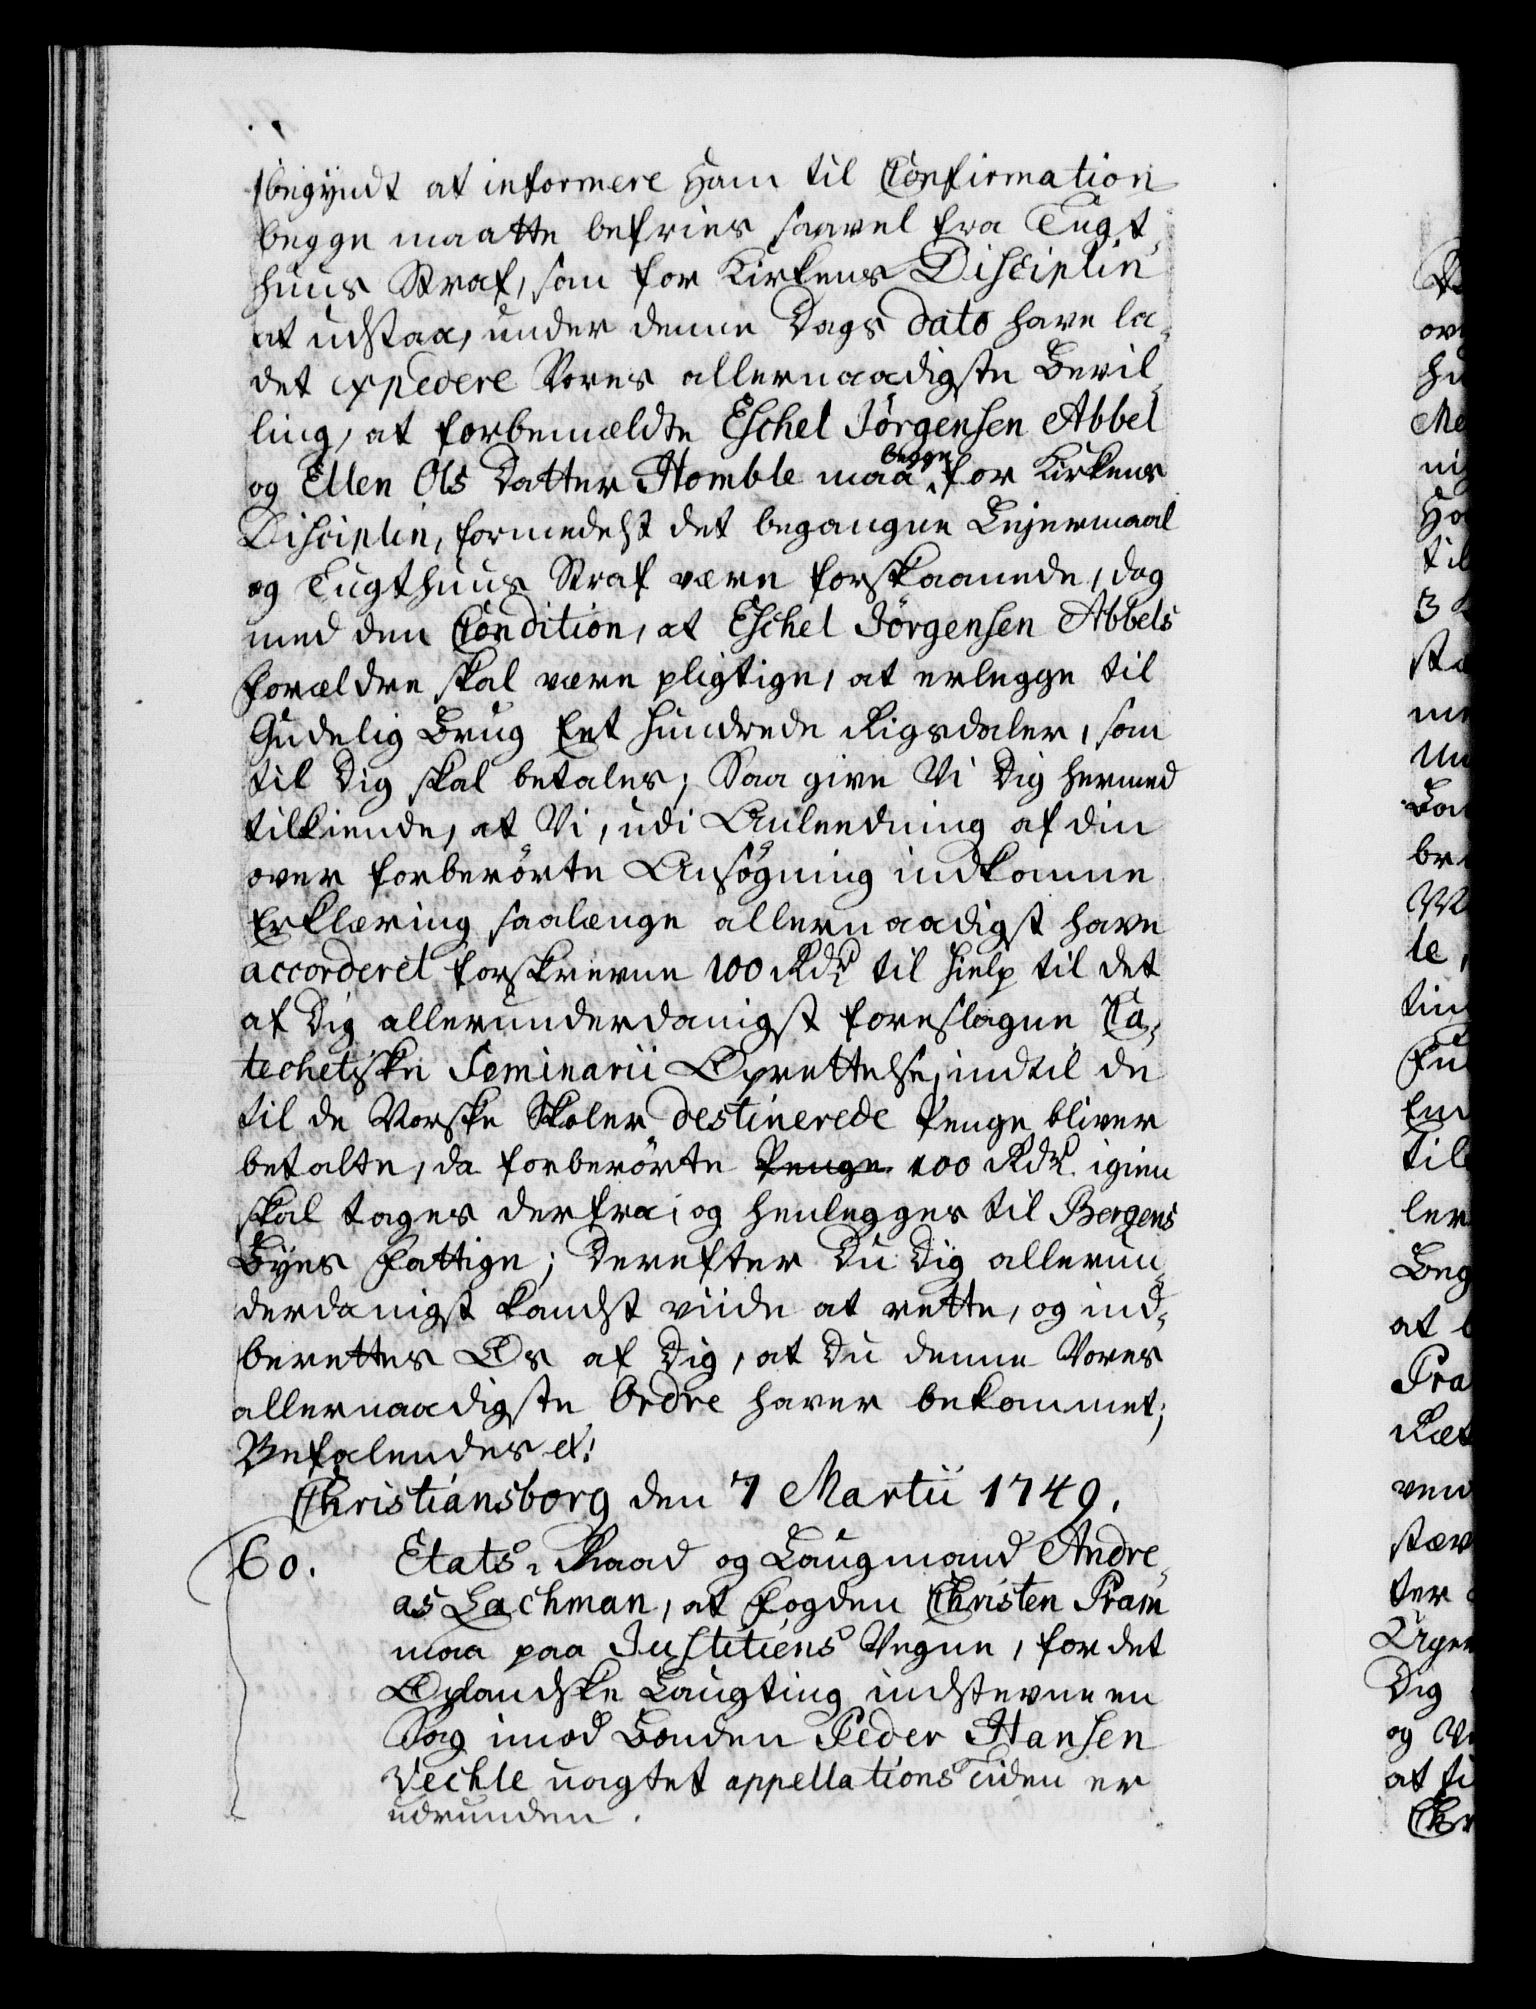 begyndt at informere ham til Confirmation
begge maatte befries saavel fra Tugt-
huus Straf, som for Kirkens Disciplin
at udstaa, under denne Dags dato have la-
det expedere Vores allernaadigste Bevil-
ling, at forbemældte Eschel Jörgensen Abbel
og Ellen Ols Datter Homble maa begge for Kirkens
Disciplin, formedelst det begangne Lejermaal
og Tugthuus Straf være forskaanede, dog
med den Condition, at Eschel Jörgensen Abbels
Forældre skal være pligtige, at erlegge til
Gudelig Brug Eet Hundrede Rigsdaler, som
til Dig skal betales; Saa give Vi Dig hermed
tilkiende, at Vi, udi Anleedning af din
over forberörte Ansögning indkomne
Erklæring saalænge allernaadigst have
accorderet forskrevne 100 Rdr til Hielp til det
af Dig allerunderdanigst foreslagne Ca-
techetiske Seminarii Oprettelse, indtil de
til de Norske Skoler destinerede Penge bliver
betalte, da forberörte Penge 100 Rdr. igien
skal tages derfra, og henlegges til Bergens
Byes Fattige; Derefter Du Dig allerun-
derdanigst kandst viide at rette, og ind-
berettes Os af Dig, at Du denne Vores
allernaadigste Ordre haver bekommet;
Befalendes etc:
Christiansborg den 7 Martii 1749.
60. Etats-Raad og Laugmand Andre-
as Lachman, at Fogden Christen Pram
maa paa Justitiens Vegne, for det
Oplandske Laugting indstevne en
Sag imod Bonden Peder Hansen
Vechle uagtet appellations Tiden er
udrunden.